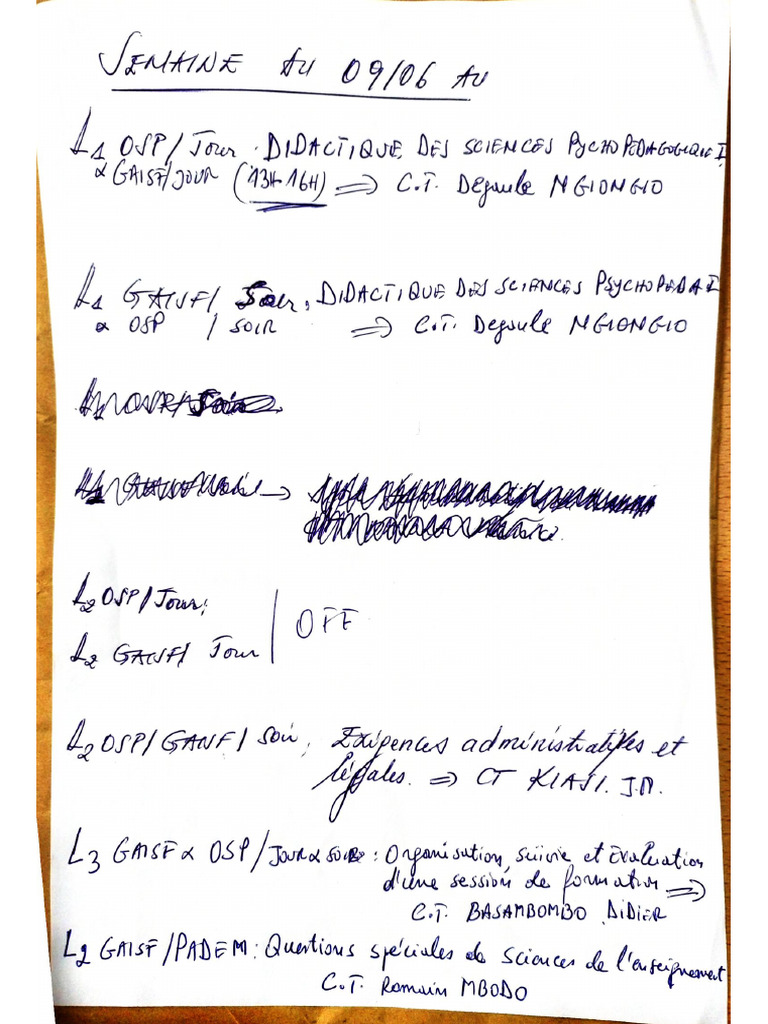 SEMAINE AU 09/06 AU
L1 OSP/Jour. DIDACTIQUE DES SCIENCES PSYCHOPEDAGOGIQUE I
& GAISF/JOUR (13H-16H) => C.T. Degaule NGIONGIO
L1 GAISF/ Soir, DIDACTIQUE DES SCIENCES PSYCHOPEDA I
& OSP / SOIR => C.T. Degaule NGIONGIO
L2 OSP/Jour;
L2 GAISF/ Jour OFF
L2 OSP/GAISF/ soir, Exigences administratives et
légales. => CT KIASI. J.M.
L3 GAISF & OSP/JOUR & SOIR : Organisation, suivie et Evaluation
d'une session de formation =>
C.T. BASAMBOMBO DIDIER
L2 GAISF/PADEM : Questions spéciales de sciences de l'enseignement
C.T. Romain MBODO